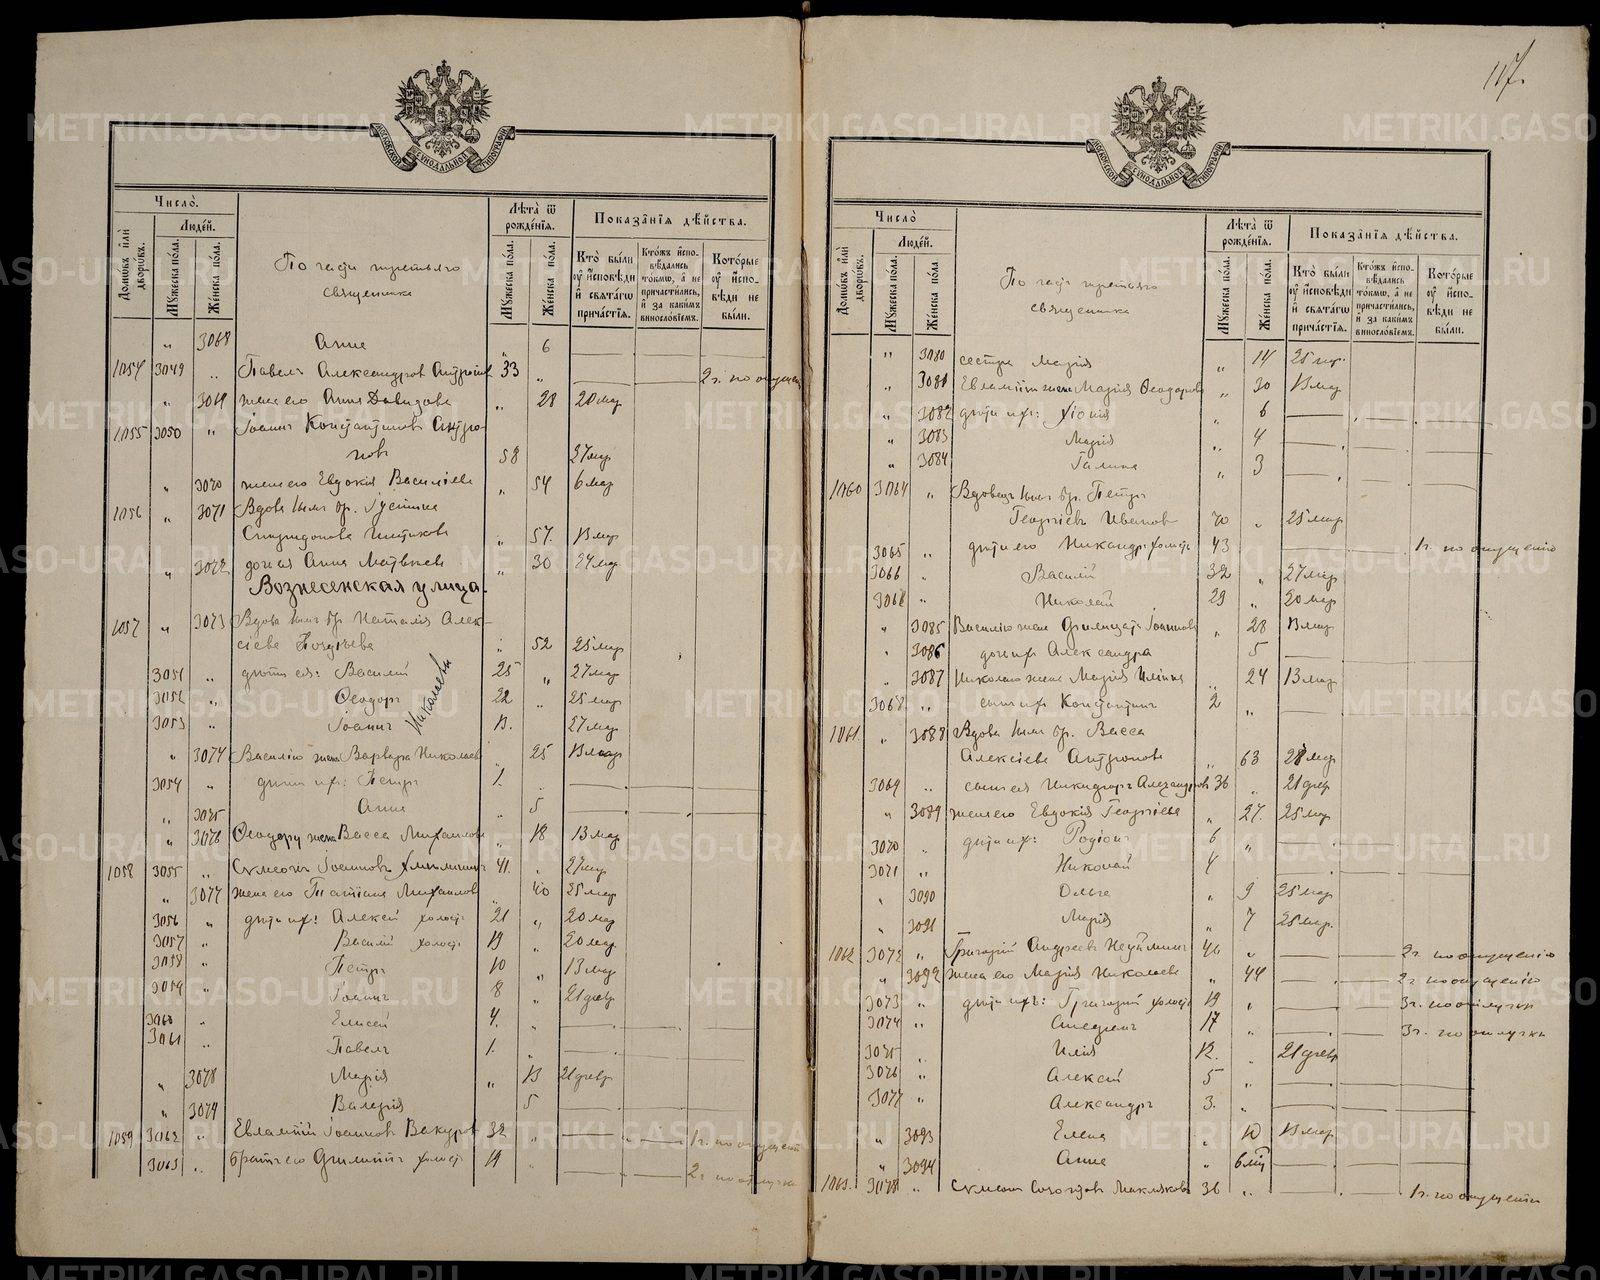 117.
МОСКОВСКОЙ СѴНОДАЛЬНОЙ ТИПОГРАФІИ
Число̀.
Людей.
Домѡвъ или̂ дворѡвъ.
Мꙋжеска по́ла.
Же́нска по́ла.
По части третьяго
священника
Лѣта̀ ѿ рожде́нїѧ.
Мꙋжеска по́ла.
Же́нска по́ла.
Показа̂нїѧ дѣ́йства.
Кто̀ бы́ли ᲂу҆ и҆сповѣди и҆ свѧта́гѡ прича́стїѧ.
Кто́жъ и҆сповѣ́дались то́кмѡ, а҆ не причасти́лись, и҆ за каки́мъ винословїемъ.
Кото́рые ᲂу҆ и҆сповѣди не бы́ли.
„ 3068 Анна „ 6
1054 3049 „ Павелъ Александровъ Антропов 33 „ 2 г. по опущен
„ 3069 жена его Анна Давидова „ 28 20 мар
1055 3050 „ Іоаннъ Константиновъ Антро-
повъ 58 27 мар
„ 3070 жена его Евдокія Васильева „ 54 6 мар
1056 „ 3071 Вдова Устинія
Спиридонова „ 57. 13 мар
„ 3072 дочь ея Анна Матвѣева „ 30 27 мар
Вознесенская улица.
1057 „ 3073 Вдова Наталія Алек-
сѣева „ 52 25 мар
3051 „ дѣти ея: Василій 25 „ 27 мар
Николаевы
3052 „ Ѳеодоръ 22 „ 25 мар
3053 „ Іоаннъ 13. 27 мар
„ 3074 Василію жена Варвара Николаев „ 25 13 мар
3054 „ дѣти ихъ: Петръ 1.
„ 3075 Анна „ 5
„ 3076 Ѳеодору жена Васса Михаилова „ 18 13 мар
1058 3055 „ Сѵмеонъ Іоанновъ 41. „ 27 мар
„ 3077 жена его Татіана Михаилов „ 40 25 мар
3056 „ дѣти их: Алексѣй холостъ 21 „ 20 мар
3057 „ Василій холостъ 19 „ 20 мар
3058 „ Петръ 10 „ 13 мар
3059 „ Іоаннъ 8 „ 21 февр
3060 „ Елисей 4. „
3061 „ Павелъ 1. „
„ 3078 Марія „ 13 21 февр
„ 3079 Валерія 5
1059 3062 „ Евлампій Іоанновъ 32 „ 1 г. по опущен
3063 „ братъ его Филиппъ холостъ 19 „ 2 г. по отлучкѣ
МОСКОВСКОЙ СѴНОДАЛЬНОЙ ТИПОГРАФІИ
Число̀
Людей.
Домѡвъ или̂ дворѡвъ.
Мꙋжеска по́ла.
Же́нска по́ла
По части третьяго
священника
Лѣта̀ ѿ рожде́нїѧ.
Мꙋжеска по́ла.
Же́нска по́ла.
Показа̂нїѧ дѣ́йства.
Кто̀ бы́ли ᲂу҆ и҆сповѣди и҆ свѧта́гѡ прича́стїѧ.
Кто́жъ и҆сповѣ́дались то́кмѡ, а҆ не причасти́лись, и҆ за каки́мъ винословїемъ.
Кото́рые ᲂу҆ и҆сповѣди не бы́ли.
„ 3080 сестра Марія „ 14 25 мар.
„ 3081 Евлампія жена Марія Ѳеодоров „ 30 13 мар
„ 3082 дѣти их: Хіонія „ 6
„ 3083 Марія „ 4
„ 3084 Галина „ 3
1060 3064 „ Вдовецъ Петръ
Георгіевъ Ивановъ 70 „ 25 мар
3065 „ дѣти его Никандръ холостъ 43 1 г. по опущенію
3066 „ Василій 32 „ 27 мар
3067 „ Николай 29 „ 20 мар
„ 3085 Василію жена Филицата Іоаннова „ 28 13 мар
„ 3086 дочь их Александра 5
„ 3087 Николаю жена Марія Ильина „ 24 13 мар
3068 „ сынъ их Константинъ 2 „
1061. „ 3088 Вдова Васса
Алексѣева Антропова „ 63 28 мар
3069 „ сынъ ея Никифоръ Александров 36 „ 21 февр
„ 3089 жена его Евдокія Георгіева „ 27. 25 мар
3070 „ дѣти их: Родіонъ 6 „
3071 „ Николай 4
„ 3090 Ольга „ 9 25 мар
„ 3091 Марія „ 7 25 мар.
1062 3072 „ Григорій Андреевъ Неуйминъ 46 „ 2 г. по опущенію
„ 3092 жена его Марія Николаева „ 44 2 г по опущенію
3073 „ дѣти ихъ: Григорій холостъ 19 „ 3 г. по отлучкѣ
3074 „ Стефанъ 17 „ 3 г. по отлучкѣ
3075 „ Илія 12. „ 21 февр
3076 „ Алексѣй 5 „
3077 „ Александръ 3. „
„ 3093 Елена „ 10 13 мар
„ 3094 Анна „ 6 мѣ
1063. 3078 „ Сѵмеонъ Созонтовъ 36 „ 1 г. по опущенію
METRIKI.GASO-URAL.RU